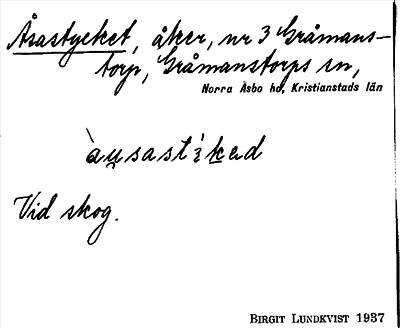 Åsastycket, åker, nr 3 Gråmans-
torp, Gråmanstorps sn,
Norra Åsbo hd, Kristianstads län
Vid skog.
BIRGIT LUNDKVIST 1937